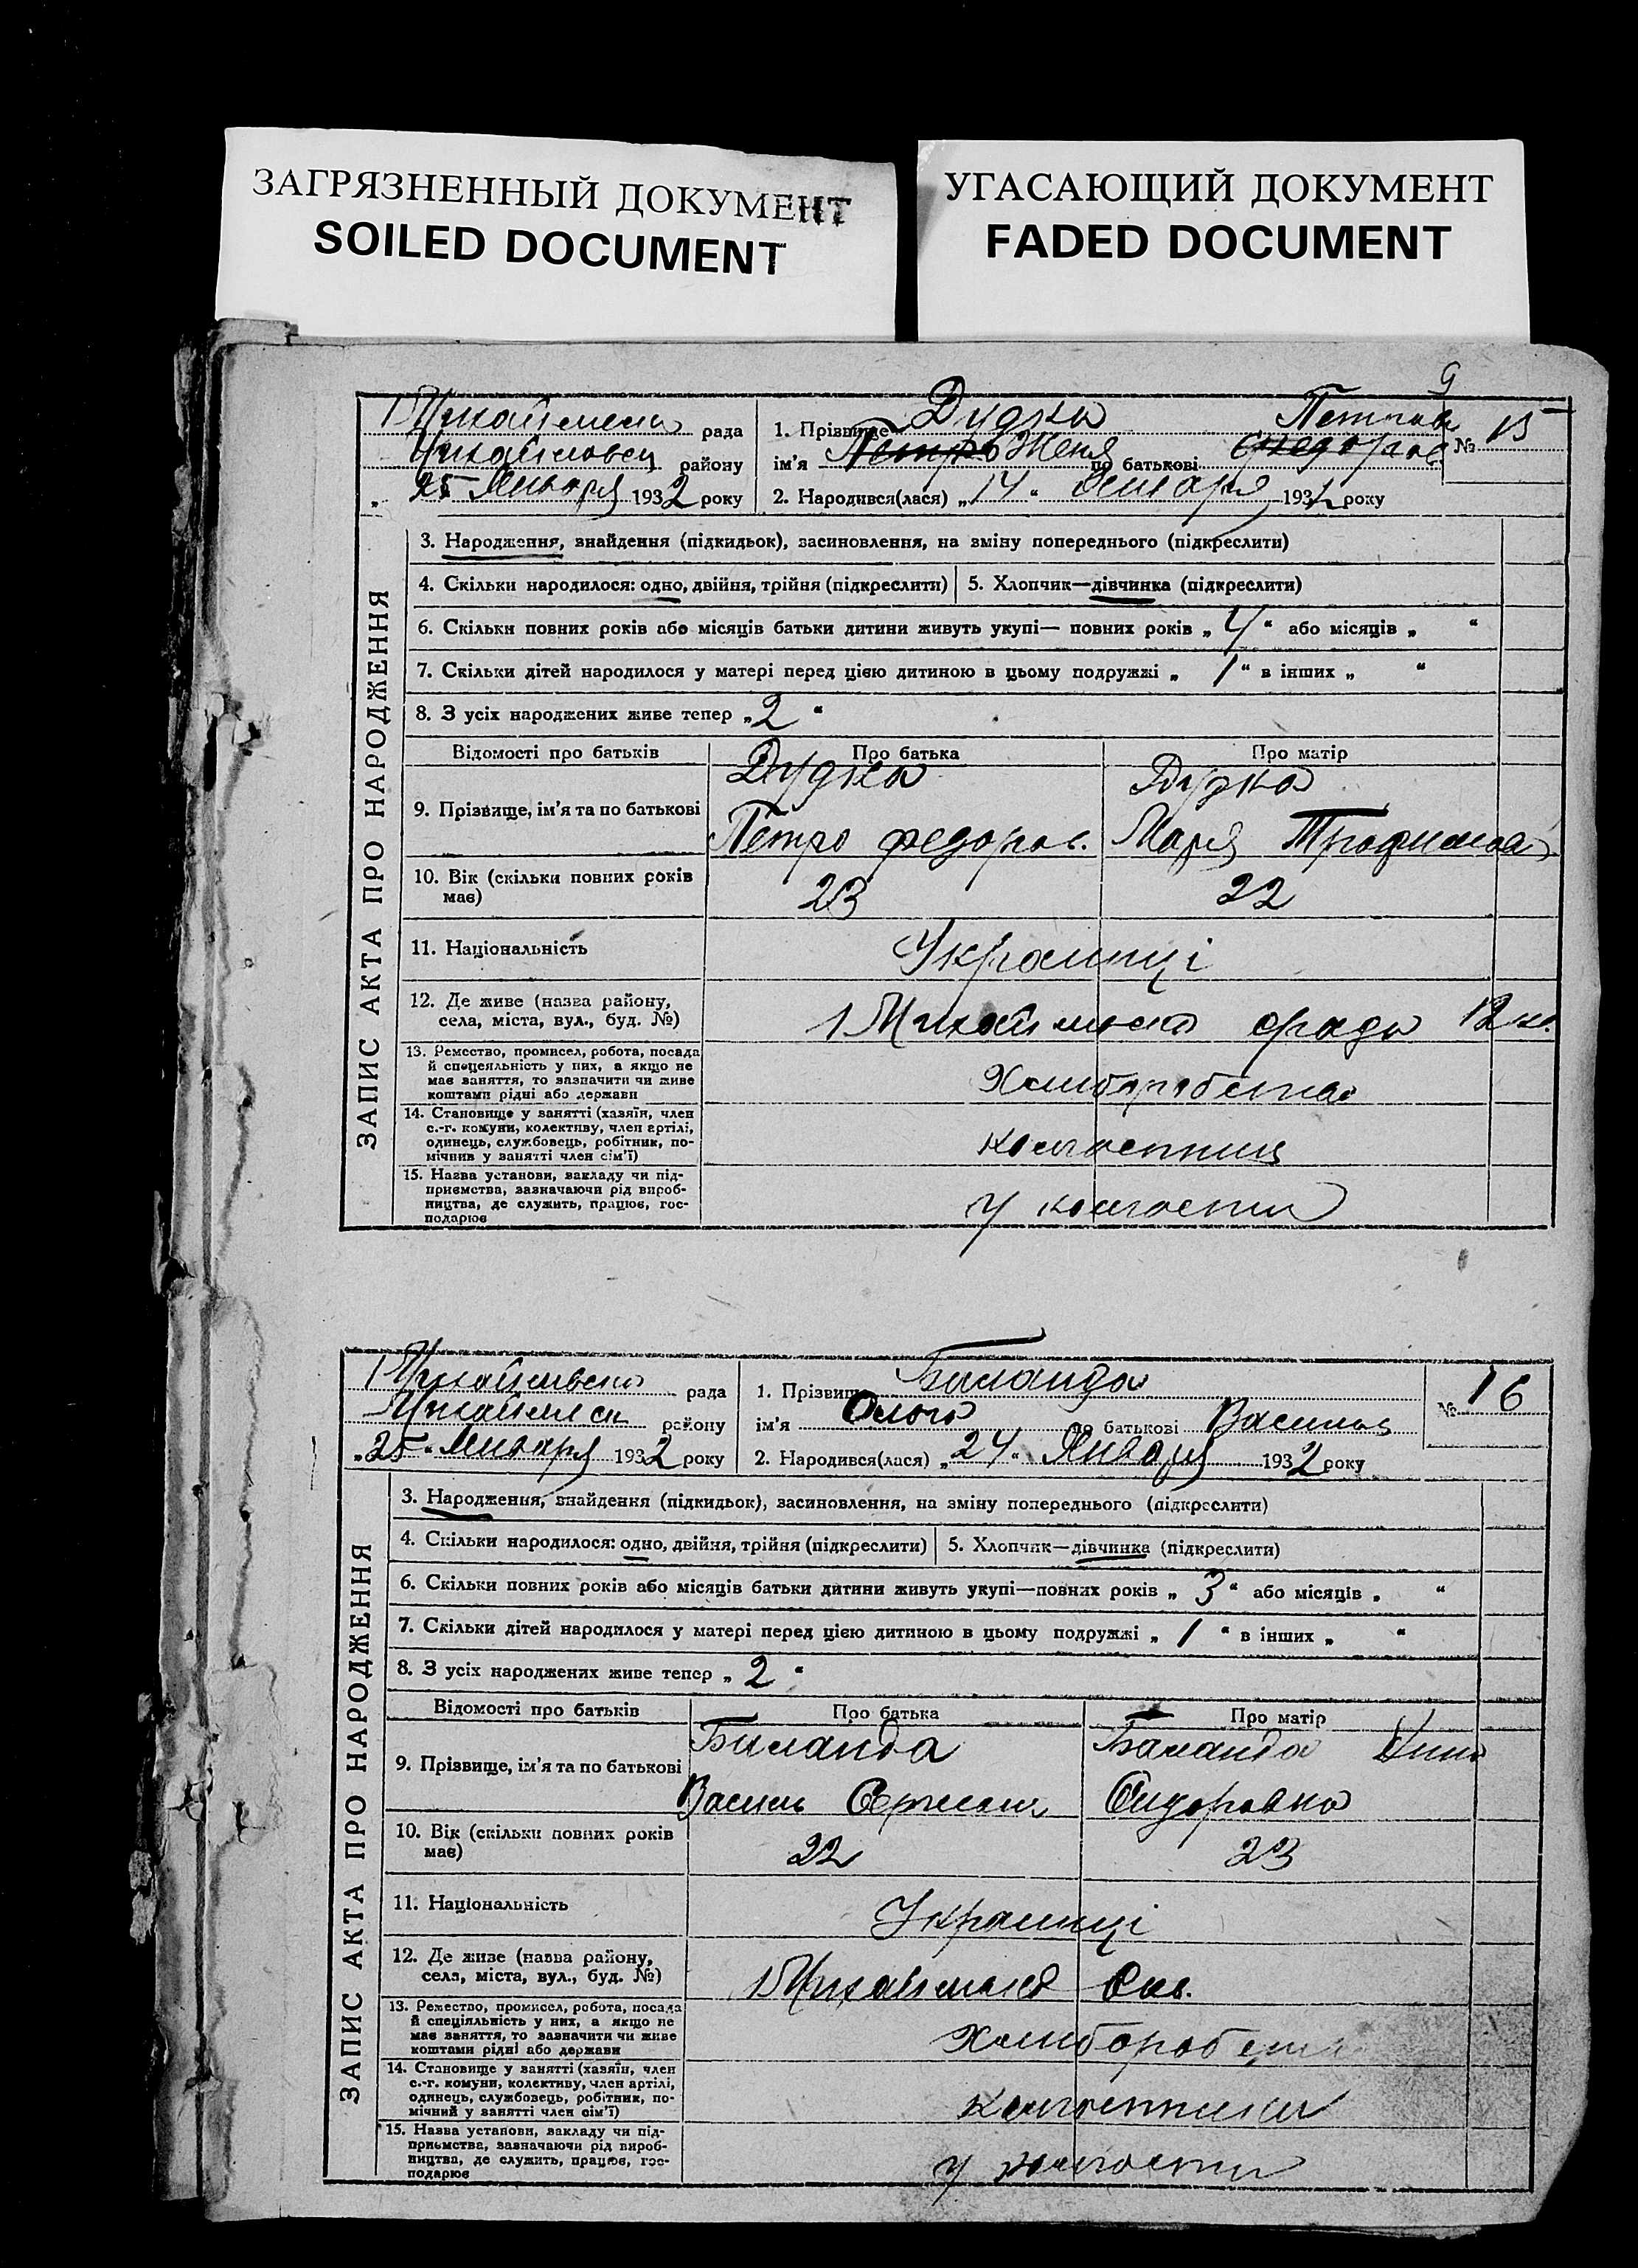 ЗАГРЯЗНЕННЫЙ ДОКУМЕНТ
SOILED DOCUMENT
УГАСАЮЩИЙ ДОКУМЕНТ
FADED DOCUMENT
9
ЗАПИС АКТА ПРО НАРОДЖЕННЯ
рада
району
„25 Января 1932 року
1. Прізвище Дудка
Петров
ім'я Петро Женя по батькові Федоров
№ 15
2. Народився(лася) „14“ 193 року
3. Народження, знайдення (підкидьок), засиновлення, на зміну попереднього (підкреслити)
4. Скільки народилося: одно, двійня, трійня (підкреслити) 5. Хлопчик—дівчинка (підкреслити)
6. Скільки повних років або місяців батьки дитини живуть укупі— повних років „4“ або місяців „ “
7. Скільки дітей народилося у матері перед цією дитиною в цьому подружжі „1“ в інших „ “
8. З усіх народжених живе тепер „2“
Відомості про батьків Про батька Про матір
9. Прізвище, ім'я та по батькові
Дудка Дудка
Петро Федоров. Мария Трофимова
10. Вік (скільки повних років має) 23 22
11. Національність Українці
12. Де живе (назва району, села, міста, вул., буд. №)
13. Ремество, промисел, робота, посада й спецеяльність у них, а якщо не має заняття, то зазначити чи живе коштами рідні або держави
14. Становище у занятті (хазяїн, член с.-г. комуни, колективу, член артілі, одинець, службовець, робітник, помічнив у занятті член сім'ї)
15. Назва установи, закладу чи підприємства, зазначаючи рід виробництва, де служить, працює, господарює
ЗАПИС АКТА ПРО НАРОДЖЕННЯ
рада
району
„25“ Января 1932 року
1. Прізвище Баланда
ім'я Ольга по батькові
№ 16
2. Народився(лася) „24“ Января 1932 року
3. Народження, знайдення (підкидьок), засиновлення, на зміну попереднього (підкреслити)
4. Скільки народилося: одно, двійня, трійня (підкреслити) 5. Хлопчик—дівчинка (підкреслити)
6. Скільки повних років або місяців батьки дитини живуть укупі—повних років „3“ або місяців „ “
7. Скільки дітей народилося у матері перед цією дитиною в цьому подружжі „1“ в інших „ “
8. З усіх народжених живе тепер „2“
Відомості про батьків Про батька Про матір
9. Прізвище, ім'я та по батькові
Баланда Баланда
Василь Сидоровна
10. Вік (скільки повних років має) 22 23
11. Національність Українці
12. Де живе (назва району, села, міста, вул., буд. №)
13. Ремество, промисел, робота, посада й спеціяльність у них, а якщо не має заняття, то зазначити чи живе коштами рідні або держави
14. Становище у занятті (хазяїн, член с.-г. комуни, колективу, член артілі, одинець, службовець, робітник, помічний у занятті член сім'ї)
15. Назва установи, закладу чи підприємства, зазначаючи рід виробництва, де служить, працює, господарює